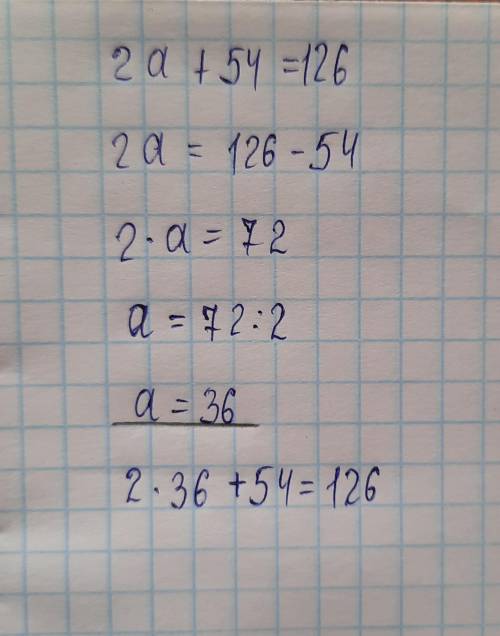 2a + 54 = 126
2a = 126 - 54
2 · a = 72
a = 72 : 2
a = 36
2 · 36 + 54 = 126